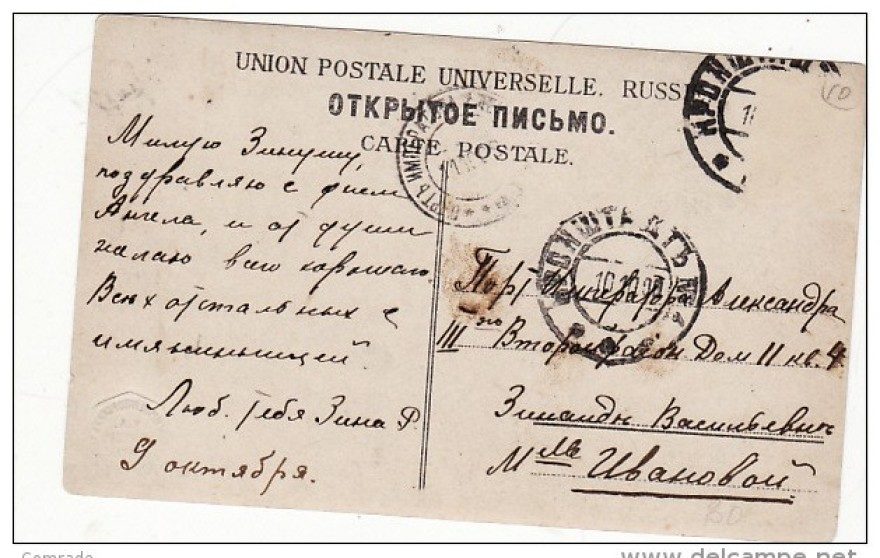 UNION POSTALE UNIVERSELLE. RUSSI
ОТКРЫТОЕ ПИСЬМО.
CARTE POSTALE.
Милую Зинушу,
поздравляю с днем
Ангела, и от души
желаю всего хорошаго
Всех остальных с
имянинницей
Люб. тебя Зина Р.
9 октября.
КРОНШТАДТЪ
КРОНШТАДТЪ
10.10.
ПОРТЪ ИМПЕРА
Порт Императора Александра
III го Второй район Дом 11 кв. 4
Зинаиде Васильевне
Mlle Ивановой
VD
Comrade
www.delcampe.net